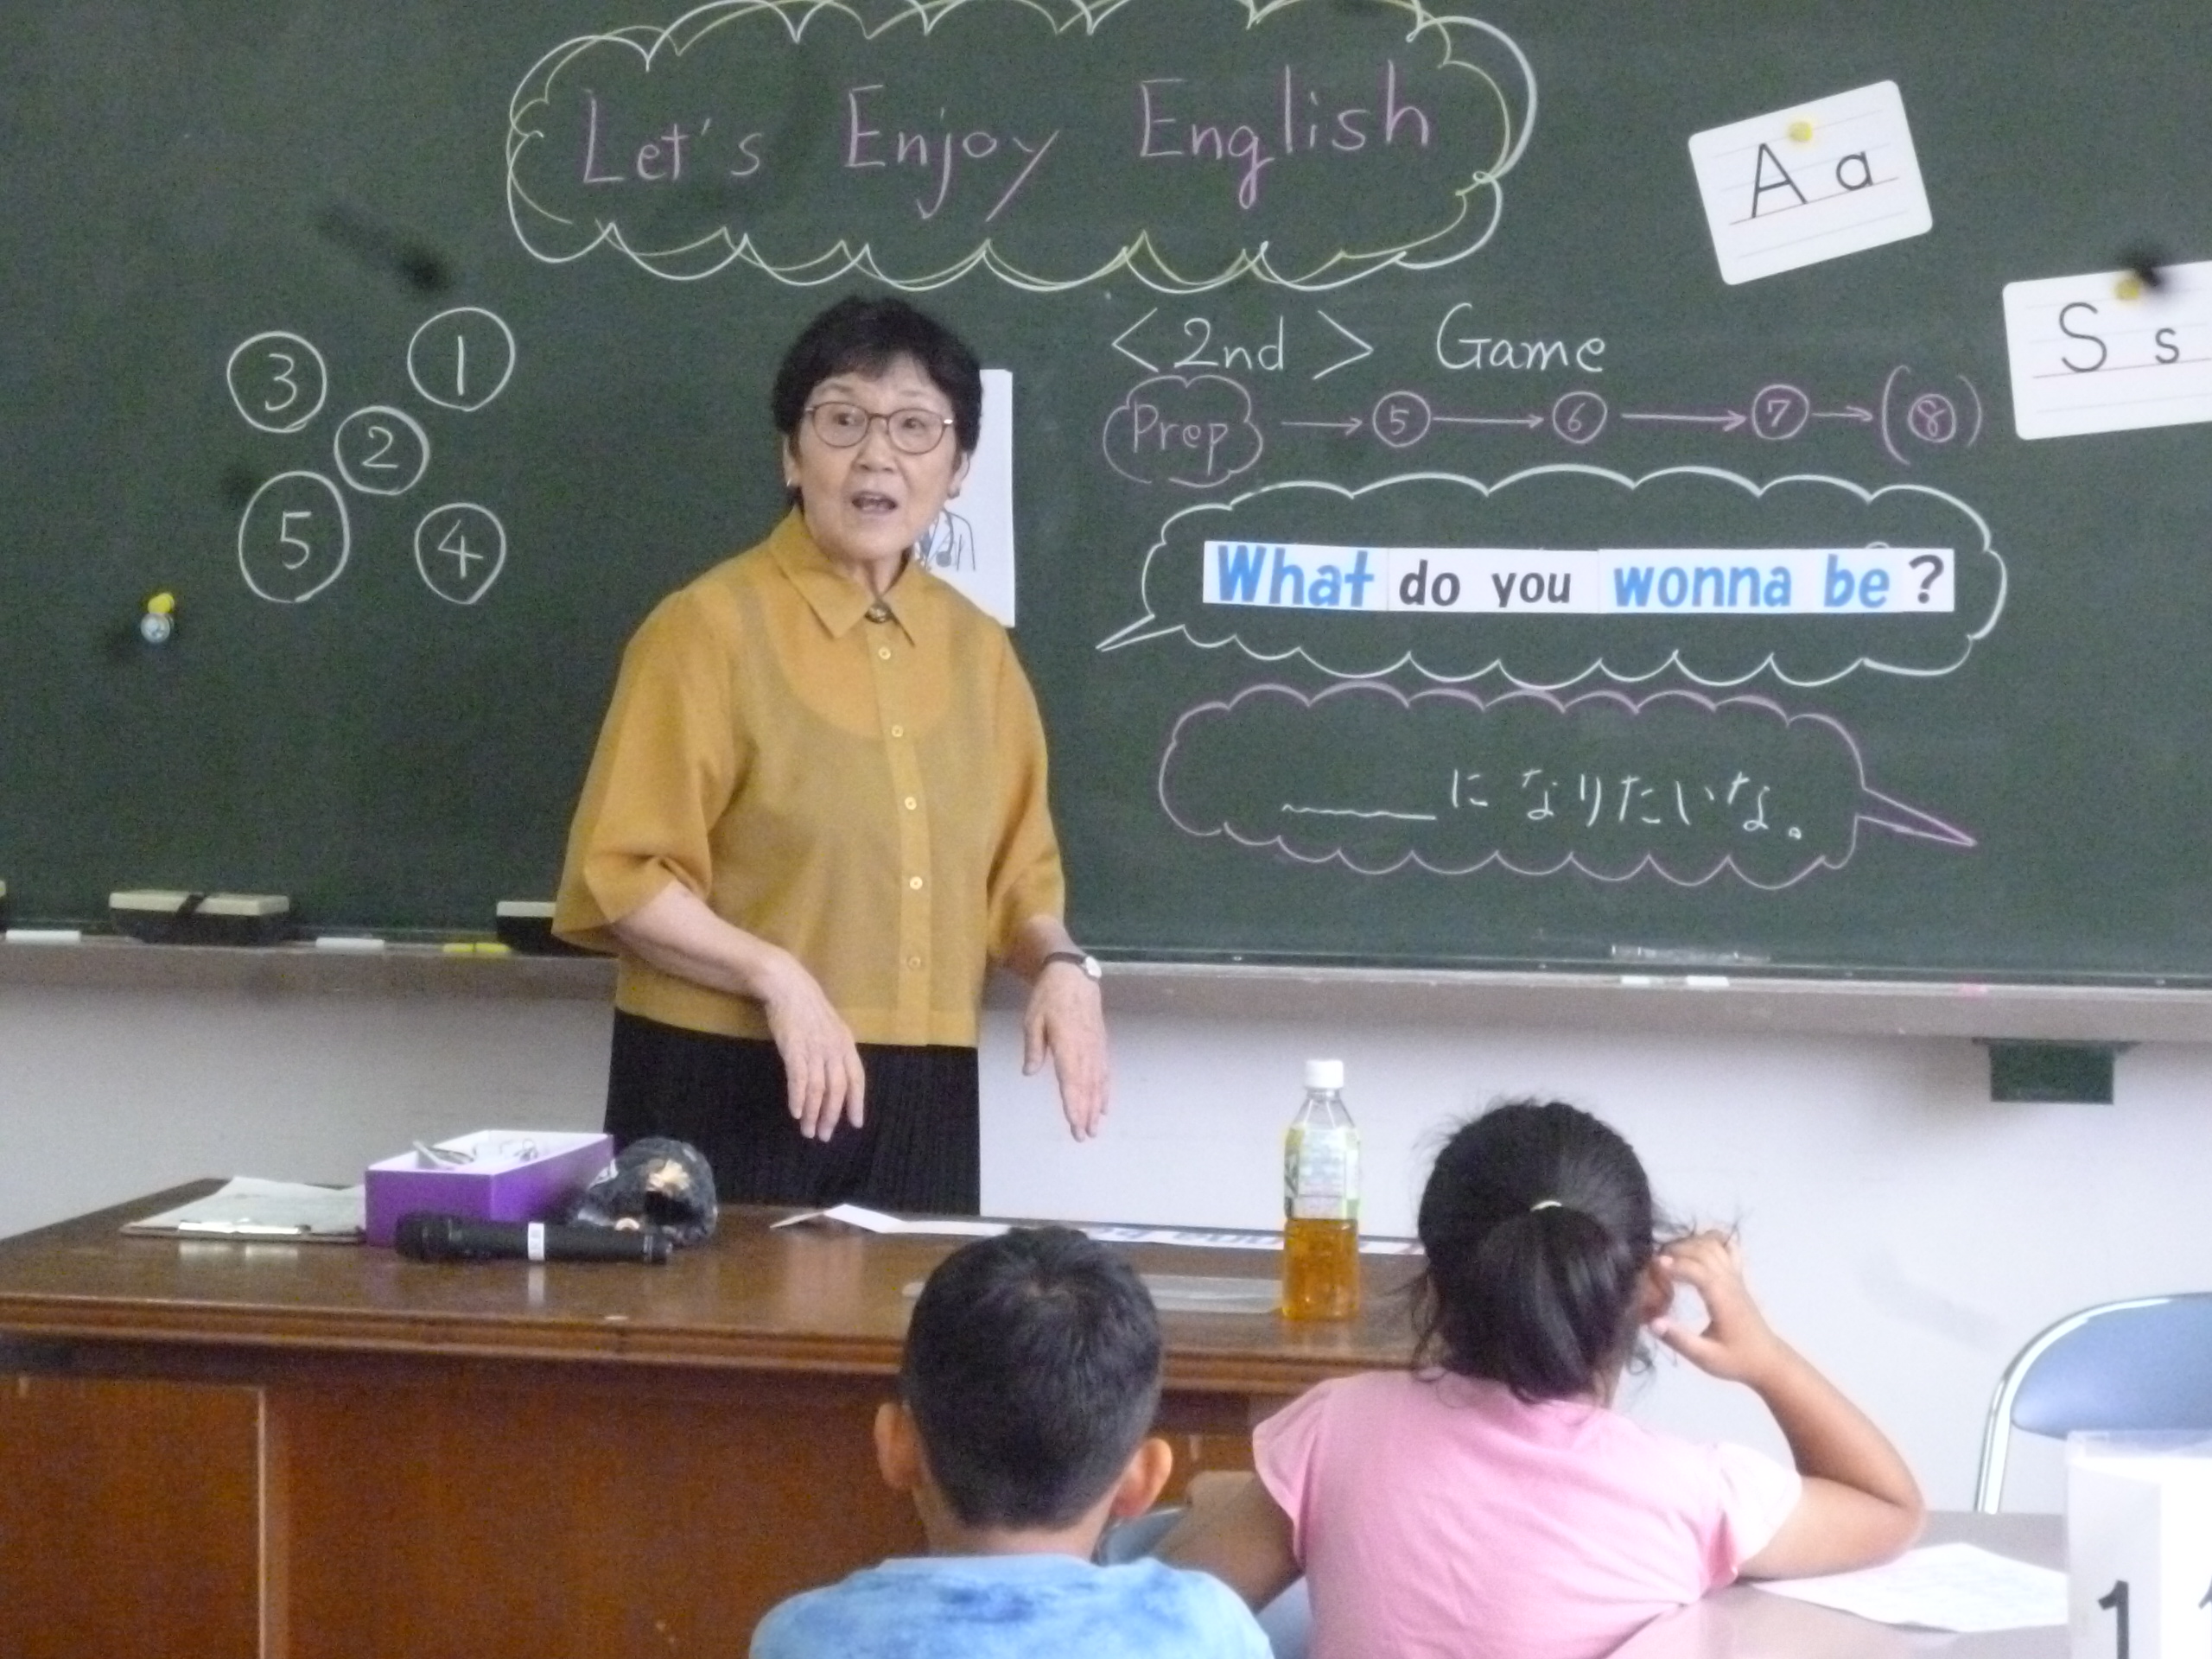 Let's Enjoy English
A a
S s
3
1
2
5
4
<2nd> Game
Prep → 5 → 6 → 7 → (8)
What do you wonna be ?
____になりたいな。
1